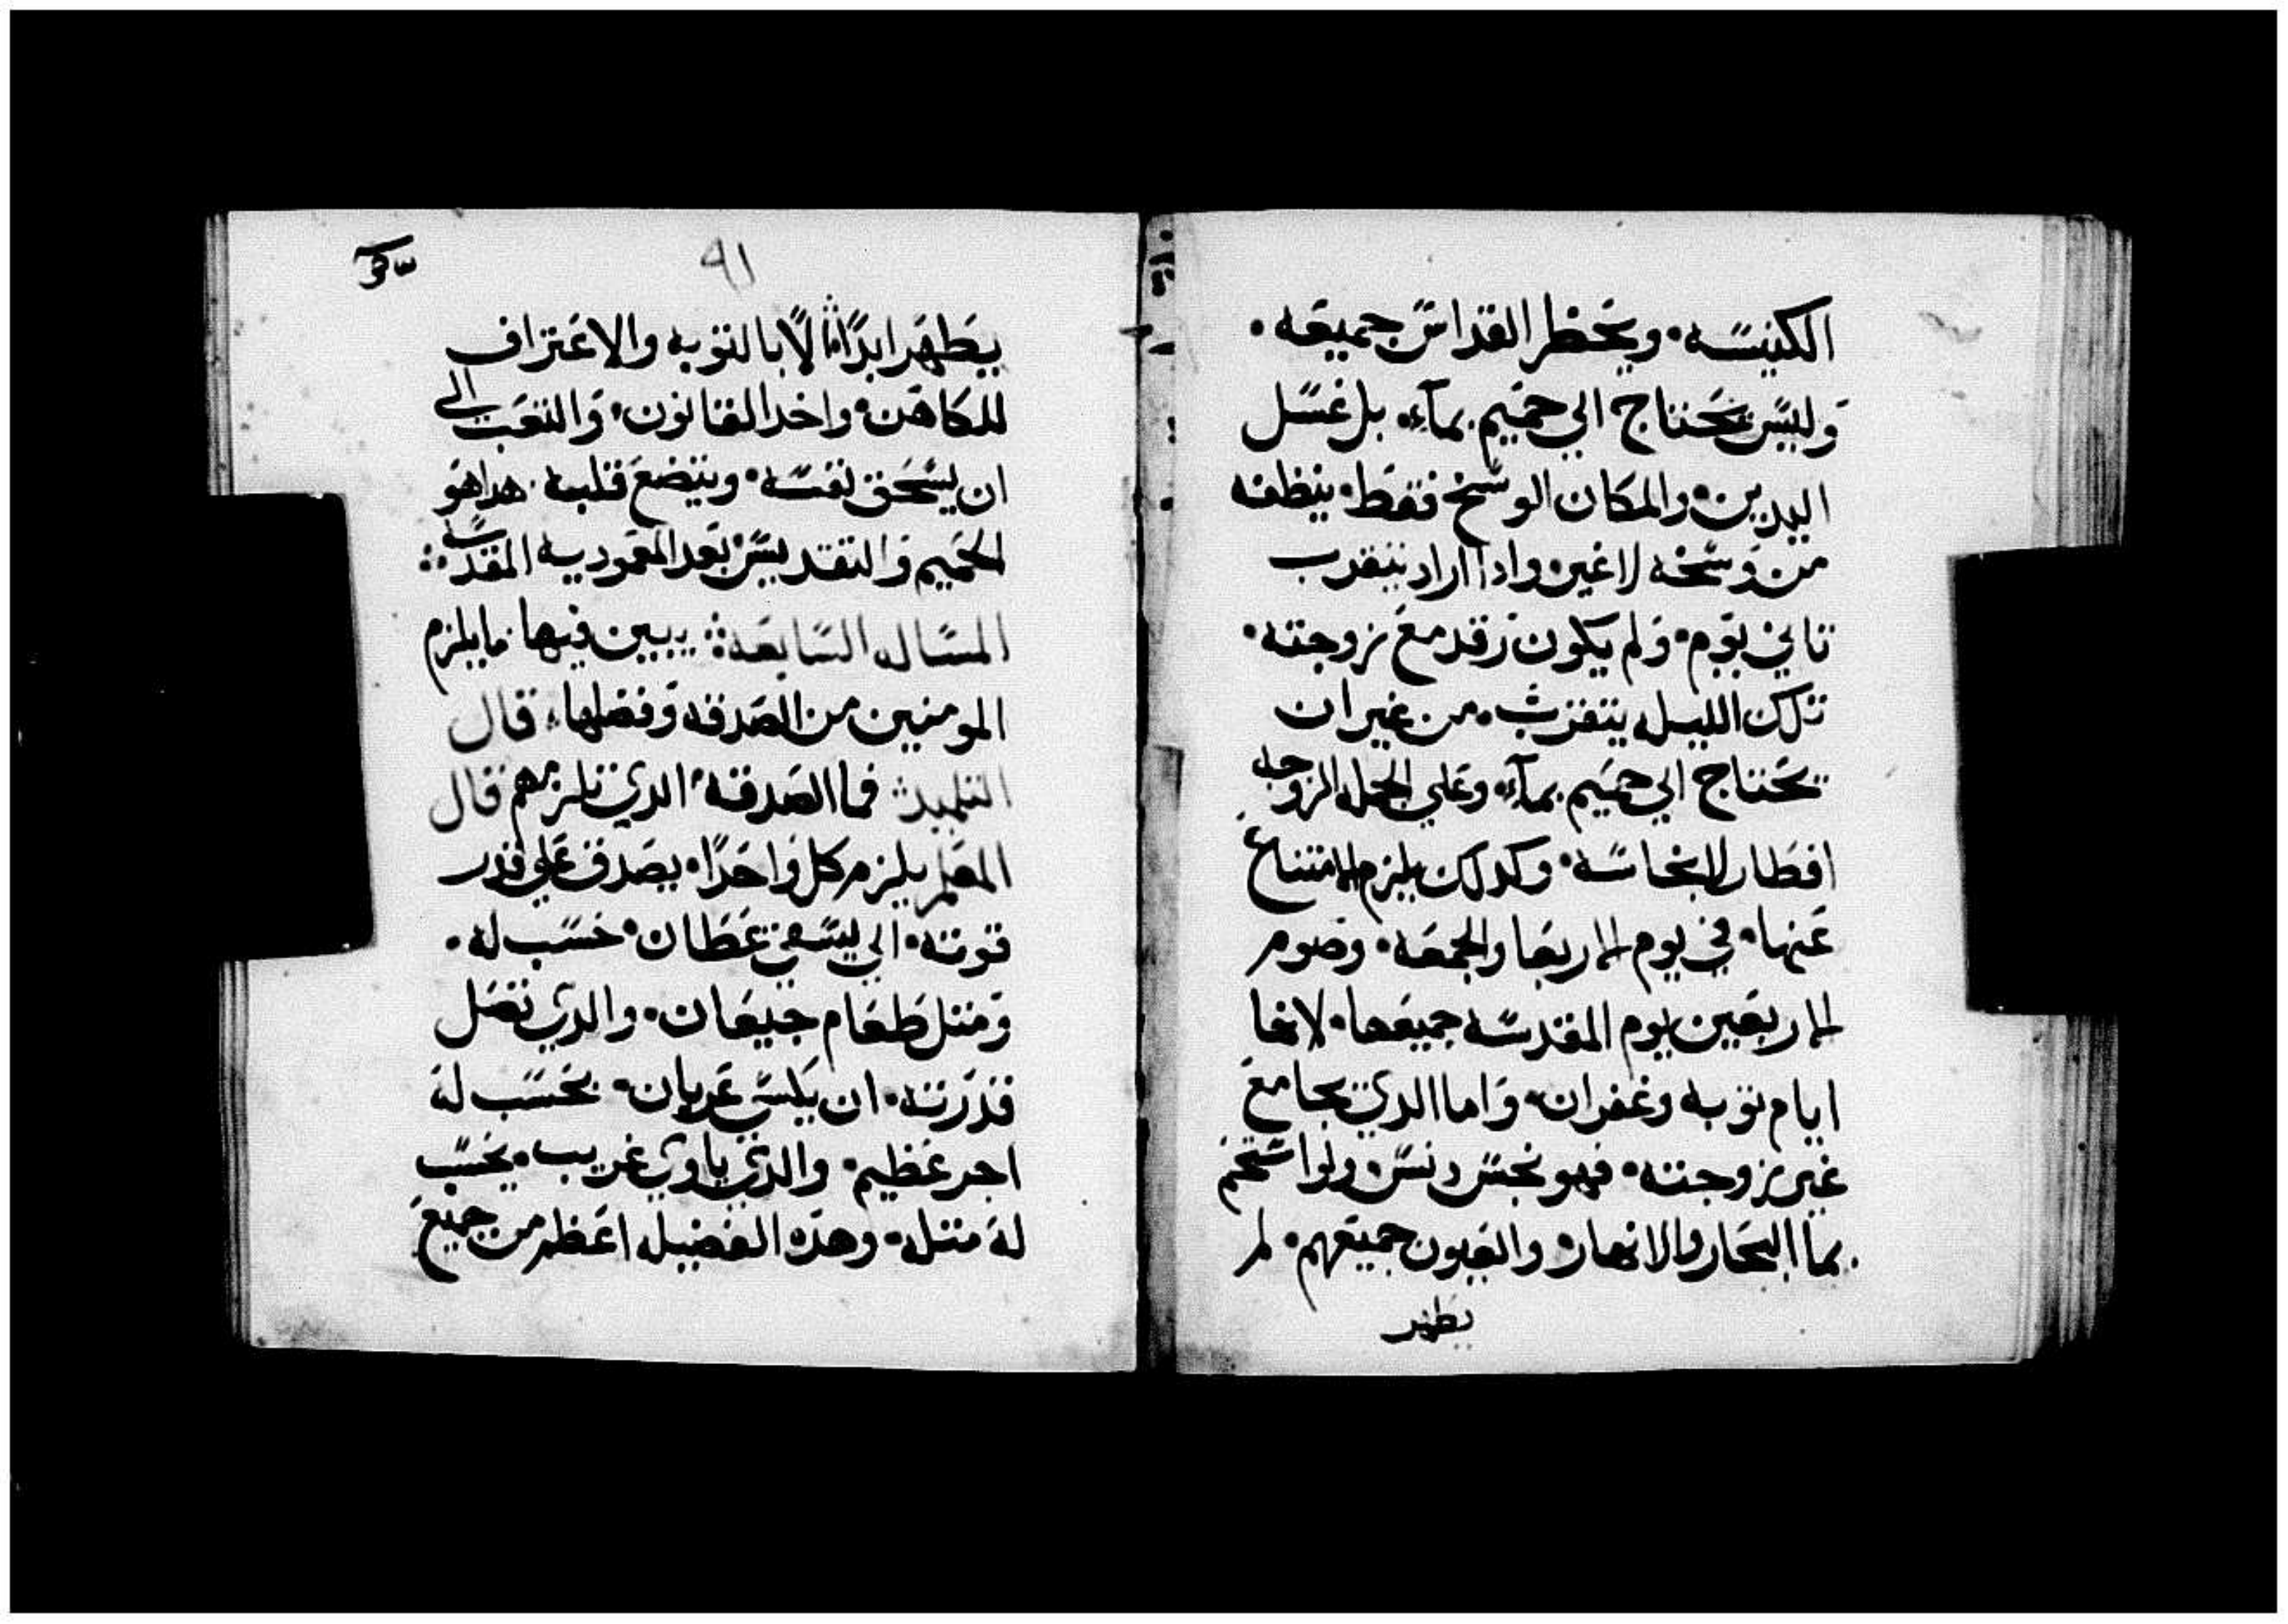 الكنيسه • ويحظر القداس جميعه •
وليس يحتاج الي حميم بماء • بل غسل
اليدين • والمكان الوسخ فقط • ينظفه
من وسخه لا غير • وادا اراد يتقرب
تاني يوم • ولم يكون رقد مع زوجته •
تلك الليله يتقرب • من غير ان
يحتاج الي حميم بماء • وعلي الجمله الزوجه
افطار لا نجاسه • وكدلك يلزم الامتناع
عنها • في يوم الاربعا والجمعه • وصوم
الاربعين يوم المقدسه جميعها • لانها
ايام توبه وغفران • واما الدي يجامع
غير زوجته • فهو نجس دنس • ولوا ستحم
بما البحار والانهار • والعيون جميعهم • لم
يطهر
٩١
يطهر ابدًا • الًا بالتوبه والاعتراف
للكاهن • واخد القانون • والتعب الي
ان يسحق نفسه • ويتضع قلبه • هدا هو
الحميم والتقديس • بعد المعموديه المقدسه ⁘
المساله السابعه ⁘ يبين فيها ما يلزم
المومنين من الصدقه وفضلها • قال
التلميد ⁘ فما الصدقه • الدي تلزمهم قال
المعلم يلزم كل واحدًا • يصدق علي قدر
قوته • الي يسقي عطان • حسب له •
ومتل طعام جيعان • والدي تصل
قدرته • ان يلبس عريان • يحسب له
اجر عظيم • والدي ياوي غريب • يحسب
له متله • وهده الفضيله اعظم من جميع